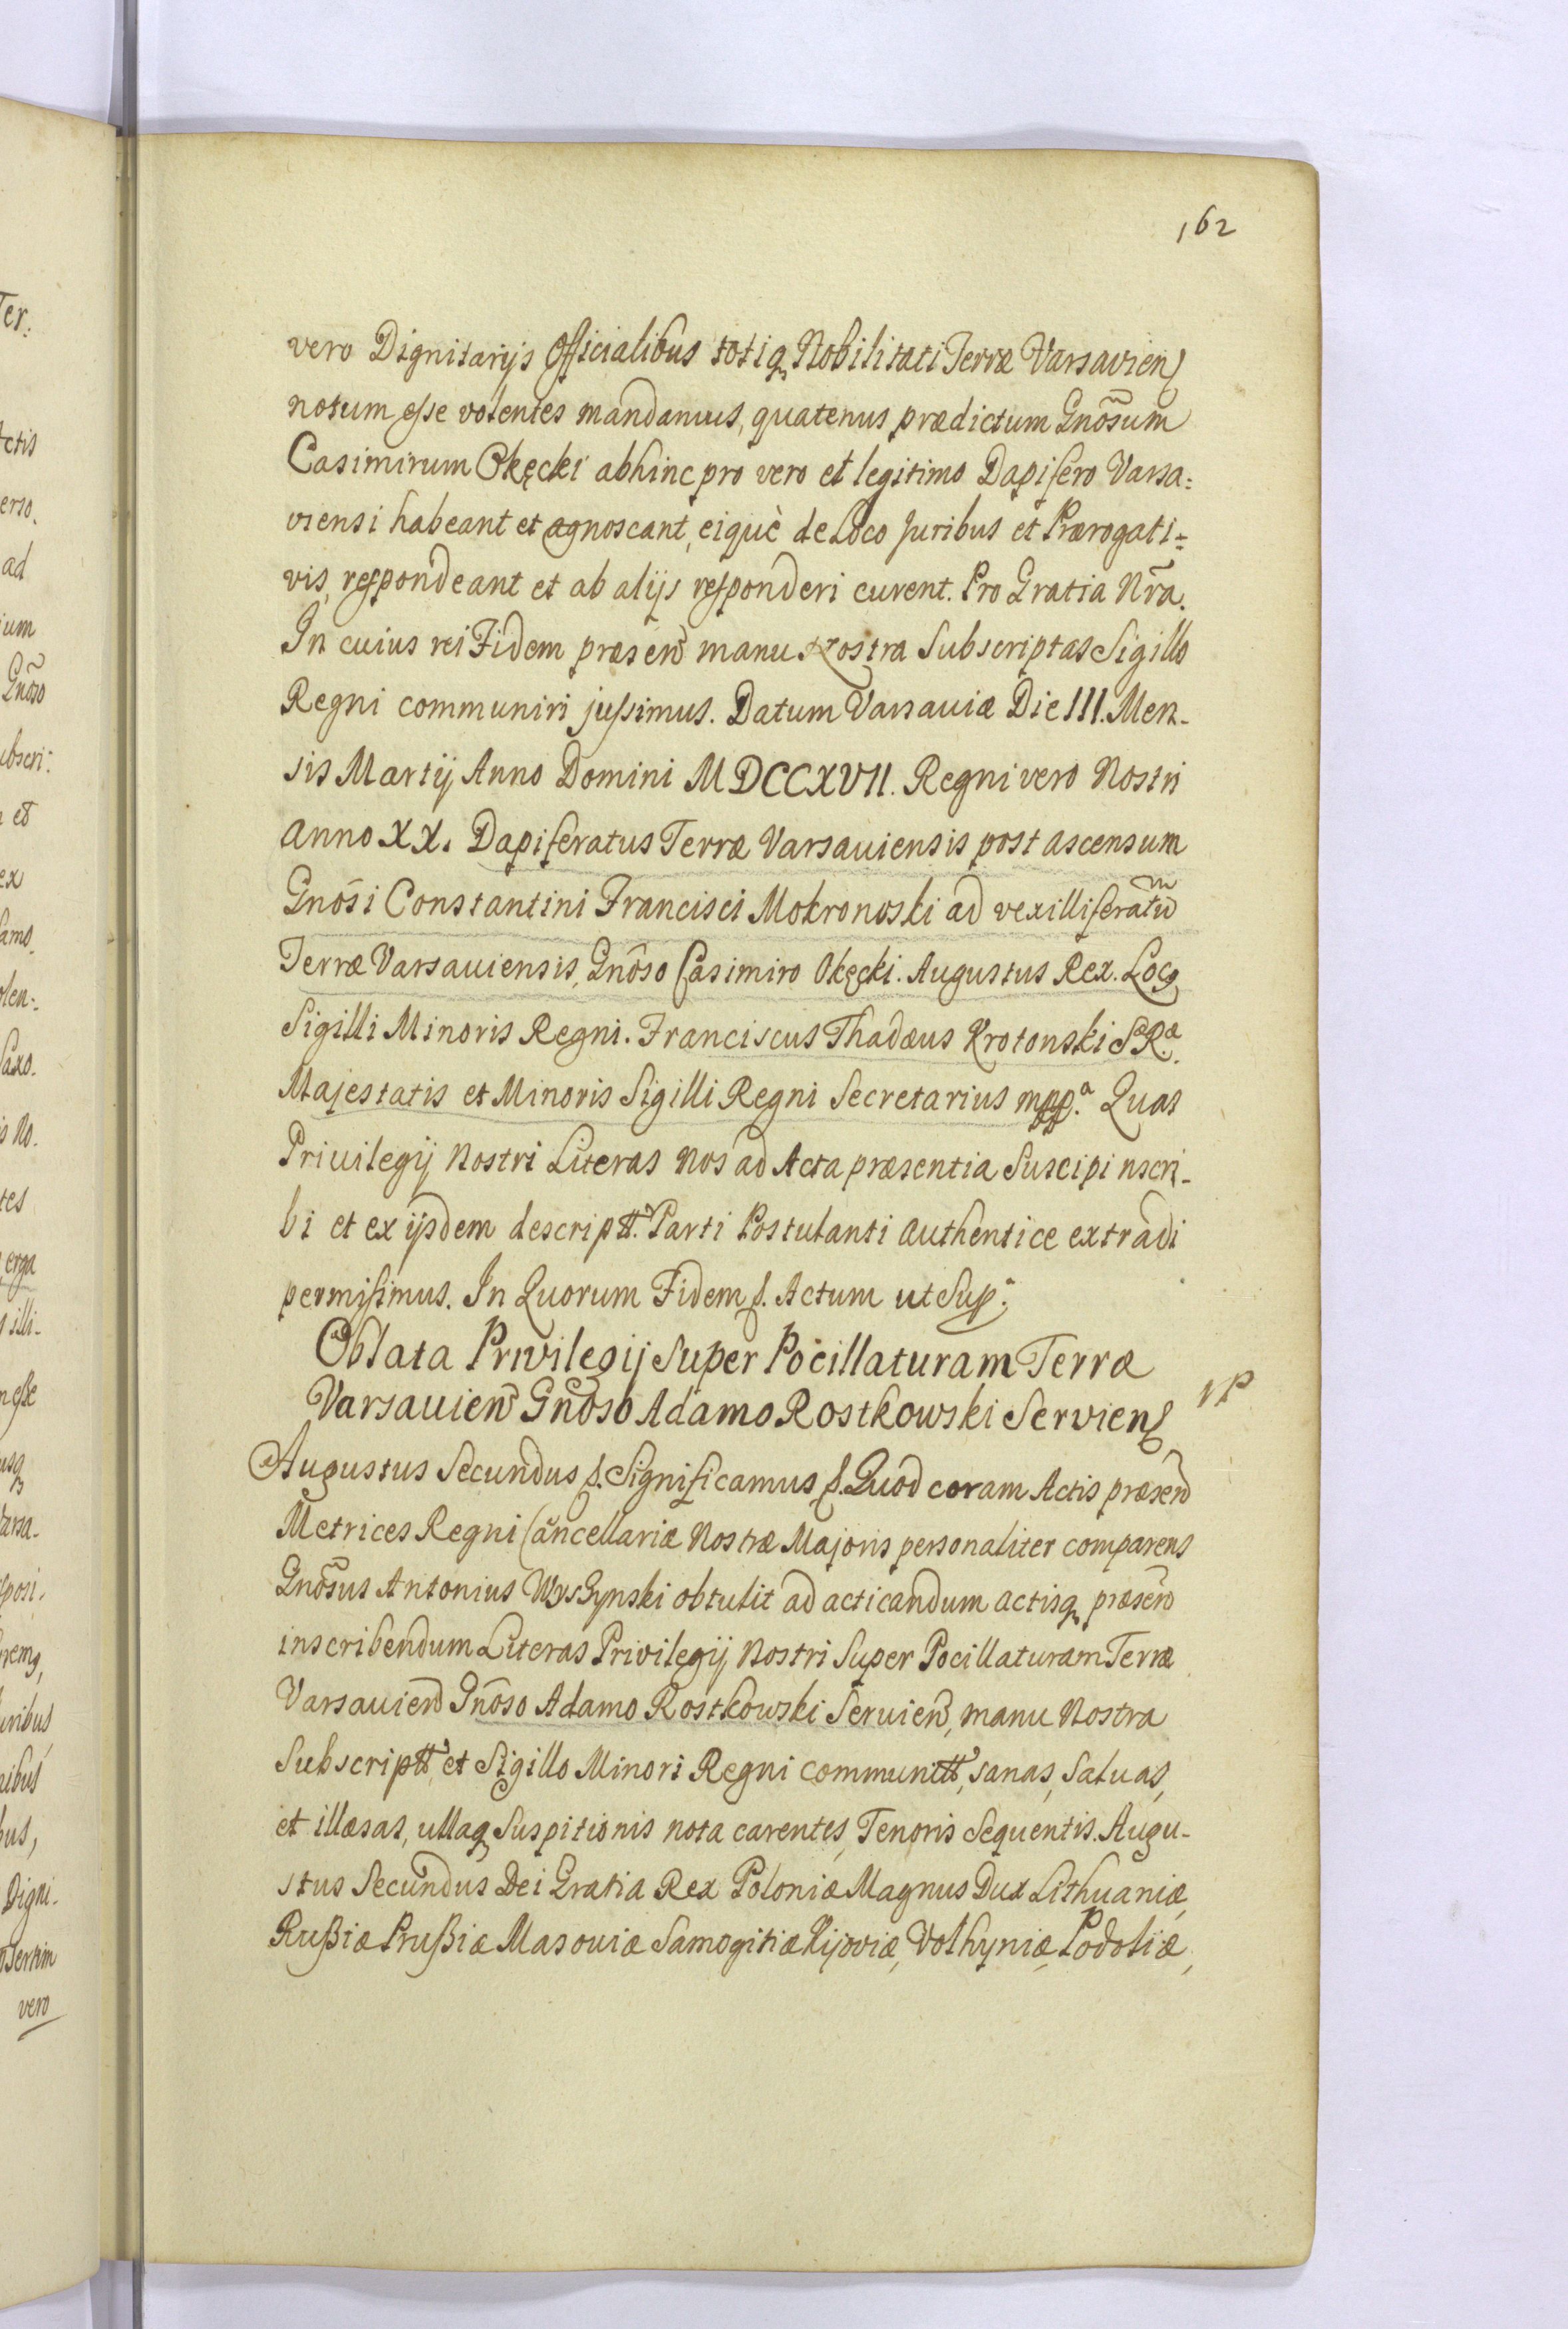 162
vero Dignitarijs Officialibus totiq Nobilitati Terræ Varsavien
notum esse volentes mandamus, quatenus prædictum Gnõsum
Casimirum Okęcki abhinc pro vero et legitimo Dapifero Varsa=
viensi habeant et agnoscant, eiquè de Loco Juribus et Prærogati=
vis, respondeant et ab alijs responderi curent. Pro Gratia Nrã.
In cuius rei Fidem præsen manu Nostra Subscriptas Sigillo
Regni communiri jussimus. Datum Varsaviæ Die III. Men-
sis Martij Anno Domini MDCCXVII. Regni vero Nostri
anno XX. Dapiferatus Terræ Varsauiensis post ascensum
Gnõsi Constantini Francisci Mokronoski ad vexilliferatũ
Terræ Varsauiensis, Gnõso Casimiro Okęcki. Augustus Rex. Locg
Sigilli Minoris Regni. Franciscus Thadæus Krotonski S.R.æ
Majestatis et Minoris Sigilli Regni Secretarius mpp.a Quas
Privilegij Nostri Literas Nos ad Acta præsentia Suscipi nscri-
bi et ex ijsdem descriptt. Parti Postulanti authentice extradi
permisimus. In Quorum Fidem p. Actum ut Sup.a
Oblata Privilegij Super Pocillaturam Terræ
Varsauien Gnõso Adamo Rostkowski Servien
VP
Augustus Secundus p. Significamus p. Quod coram Actis præsen
Metrices Regni Cancellariæ Nostræ Majoris personaliter comparens
Gnõsus Antonius Wyszynski obtulit ad acticandum actisq præsen
inscribendum Literas Privilegij Nostri Super Pocillaturam Terræ
Varsauien Gnõso Adamo Rostkowski Seruien, manu Nostra
Subscriptt, et Sigillo Minori Regni communitt, sanas, saluas,
et illæsas, ullaq Suspitionis nota carentes, Tenoris Sequentis. Augu-
stus Secundus Dei Gratia Rex Poloniæ Magnus Dux Lithuaniæ,
Rußiæ Prußiæ Masouiæ Samogitiæ Kijoviæ, Volhyniæ, Podoliæ,